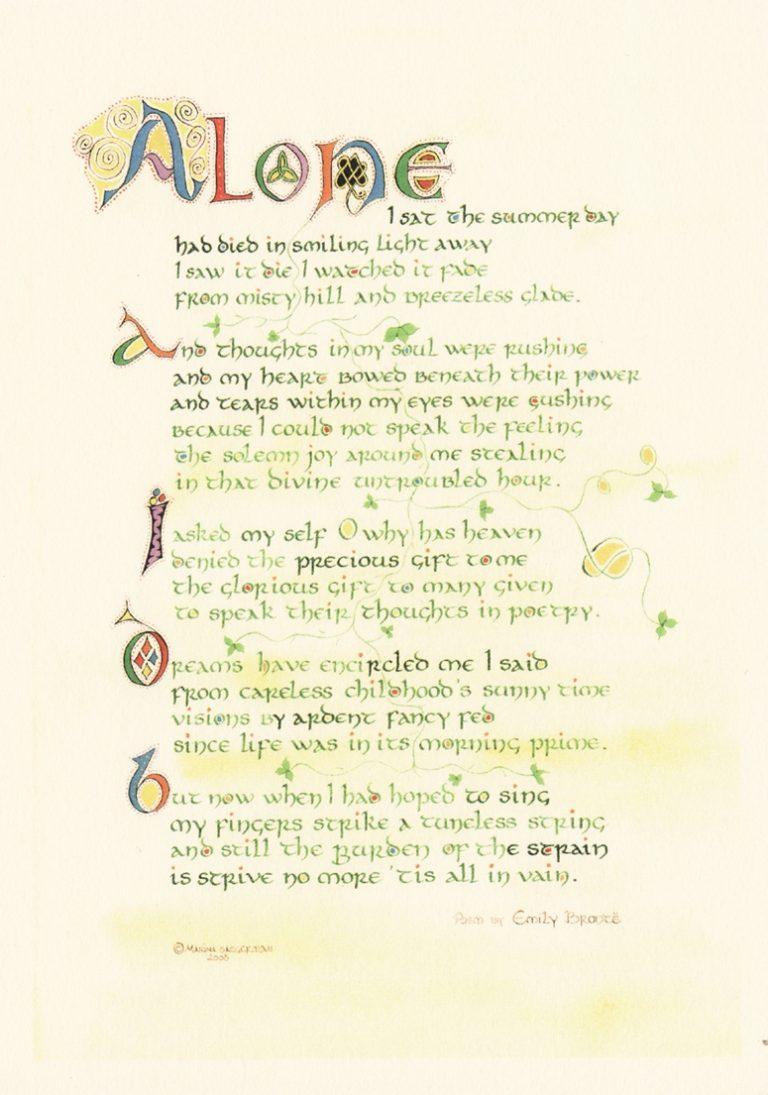 Alone
I sat the summer day
had died in smiling light away
I saw it die I watched it fade
from misty hill and breezeless glade.
And thoughts in my soul were rushing
and my heart bowed beneath their power
and tears within my eyes were gushing
because I could not speak the feeling
the solemn joy around me stealing
in that divine untroubled hour.
I asked my self O why has heaven
denied the precious gift to me
the glorious gift to many given
to speak their thoughts in poetry.
Dreams have encircled me I said
from careless childhood's sunny time
visions by ardent fancy fed
since life was in its morning prime.
But now when I had hoped to sing
my fingers strike a tuneless string
and still the burden of the strain
is strive no more 'tis all in vain.
Poem by Emily Brontë
©
2005